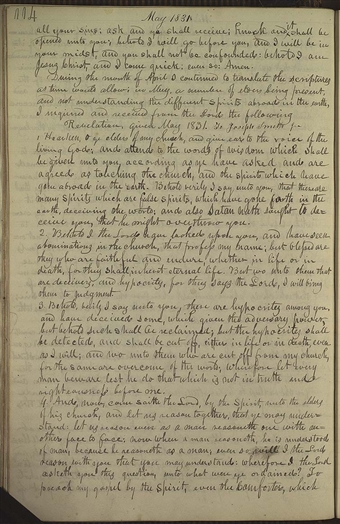 114
May 1831.
all your sins; ask and ye shall receive; knock and it shall be
opened unto you; behold I will go before you, and I will be in
your midst, and you shall not be confounded: behold I am
Jesus Christ and I come quick; even so: Amen.
During the month of April I continued to translate the scriptures
as time would allow; in May, a number of elders being present,
and not understanding the different spirits abroad in the earth,
I inquired and received from the Lord the following
Revelation, given May 1831. To Joseph Smith Jr
1 Hearken, O ye elders of my church, and give ear to the voice of the
living God; and attend to the words of wisdom which shall
be given unto you, according as ye have asked and are
agreed as touching the church, and the spirits which have
gone abroad in the earth. Behold verily I say unto you, that there are
many spirits which are false spirits, which have gone forth in the
earth, deceiving the world; and also Satan hath sought to de-
ceive you, that he might overthrow you.
2. Behold I the Lord have looked upon you, and have seen
abominations in the church, that profess my name; but blessed are
they who are faithful and endure, whether in life or in
death, for they shall inherit eternal life. But wo unto them that
are deceivers, and hypocrites, for thus saith the Lord, I will bring
them to judgment.
3 Behold, verily I say unto you, there are hypocrites among you,
and have deceived some, which has given the adversary power;
but behold such shall be reclaimed; but the hypocrites shall
be detected, and shall be cut off, either in life or in death, even
as I will; and wo unto them who are cut off from my church,
for the same are overcome of the world; Wherefore let every
man beware lest he do that which is not in truth and
righteousness before me.
4 And, now, come saith the Lord, by the Spirit, unto the elders
of his church, and let us reason together, that ye may under-
stand: let us reason even as a man reasoneth one with an-
other face to face: now when a man reasoneth, he is understood
of man, because he reasoneth as a man; even so will I the Lord
reason with you that you may understand: wherefore I the Lord
asketh you this question, unto what were ye ordained? To
preach my gospel by the Spirit, even the Comforter, which